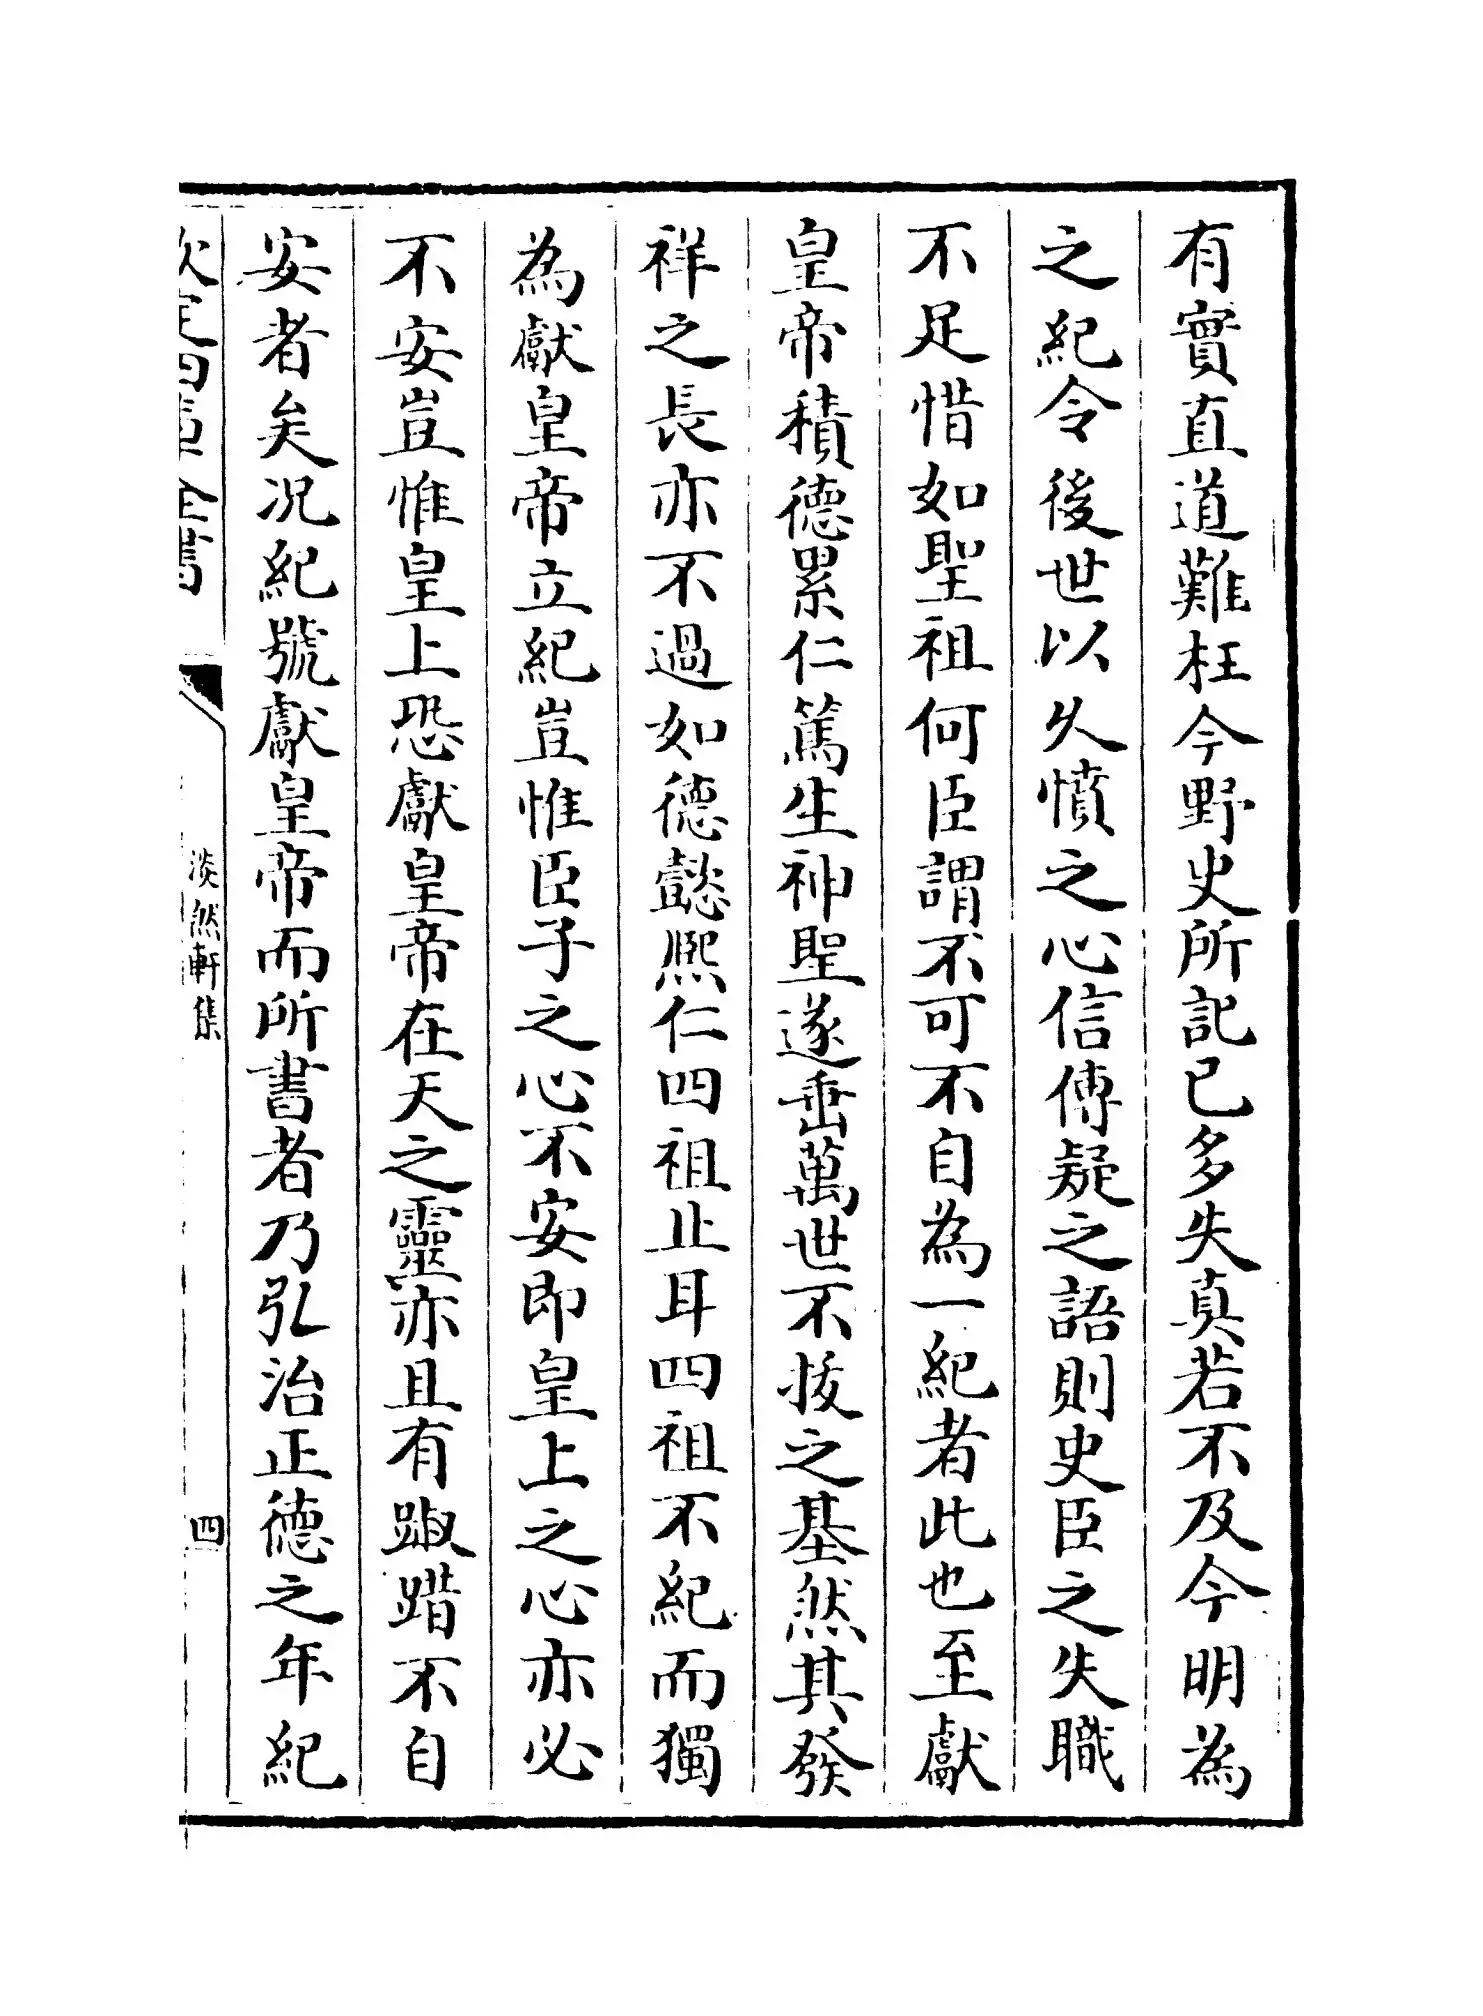 有實直道難枉今野史所記已多失真若不及今明為
之紀令後世以久憤之心信傳疑之語則史臣之失職
不足惜如聖祖何臣謂不可不自為一紀者此也至獻
皇帝積德累仁篤生神聖遂垂萬世不拔之基然其發
祥之長亦不過如德懿熙仁四祖止耳四祖不紀而獨
為獻皇帝立紀豈惟臣子之心不安即皇上之心亦必
不安豈惟皇上恐獻皇帝在天之靈亦且有踧踖不自
安者矣况紀號獻皇帝而所書者乃弘治正德之年紀
欽定四庫全書
淡然軒集
四